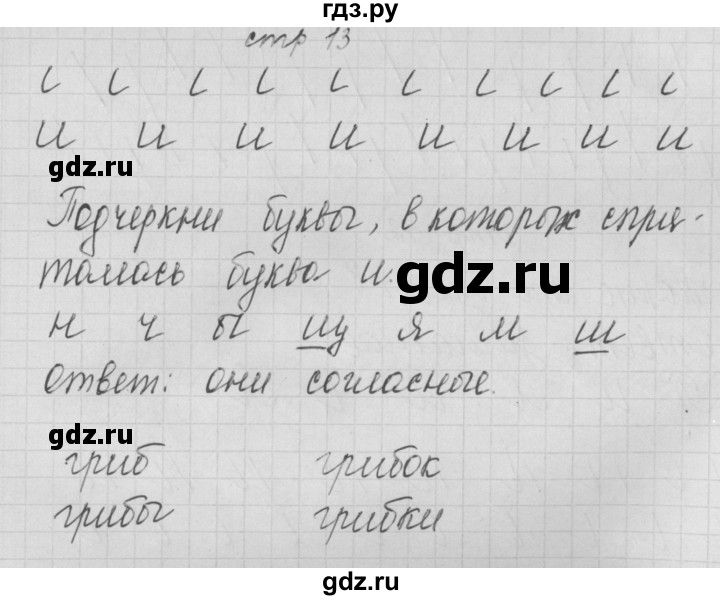 гдз.ру
стр 13
ι ι ι ι ι ι ι ι ι ι
и и и и и и и и
gdz.ru
Подчеркни буквы, в которых спря-
талась буква и.
gdz.ru
н ч ы щ я м ш
Ответ: они согласные.
gdz.ru
гриб грибок
грибы грибки
gdz.ru